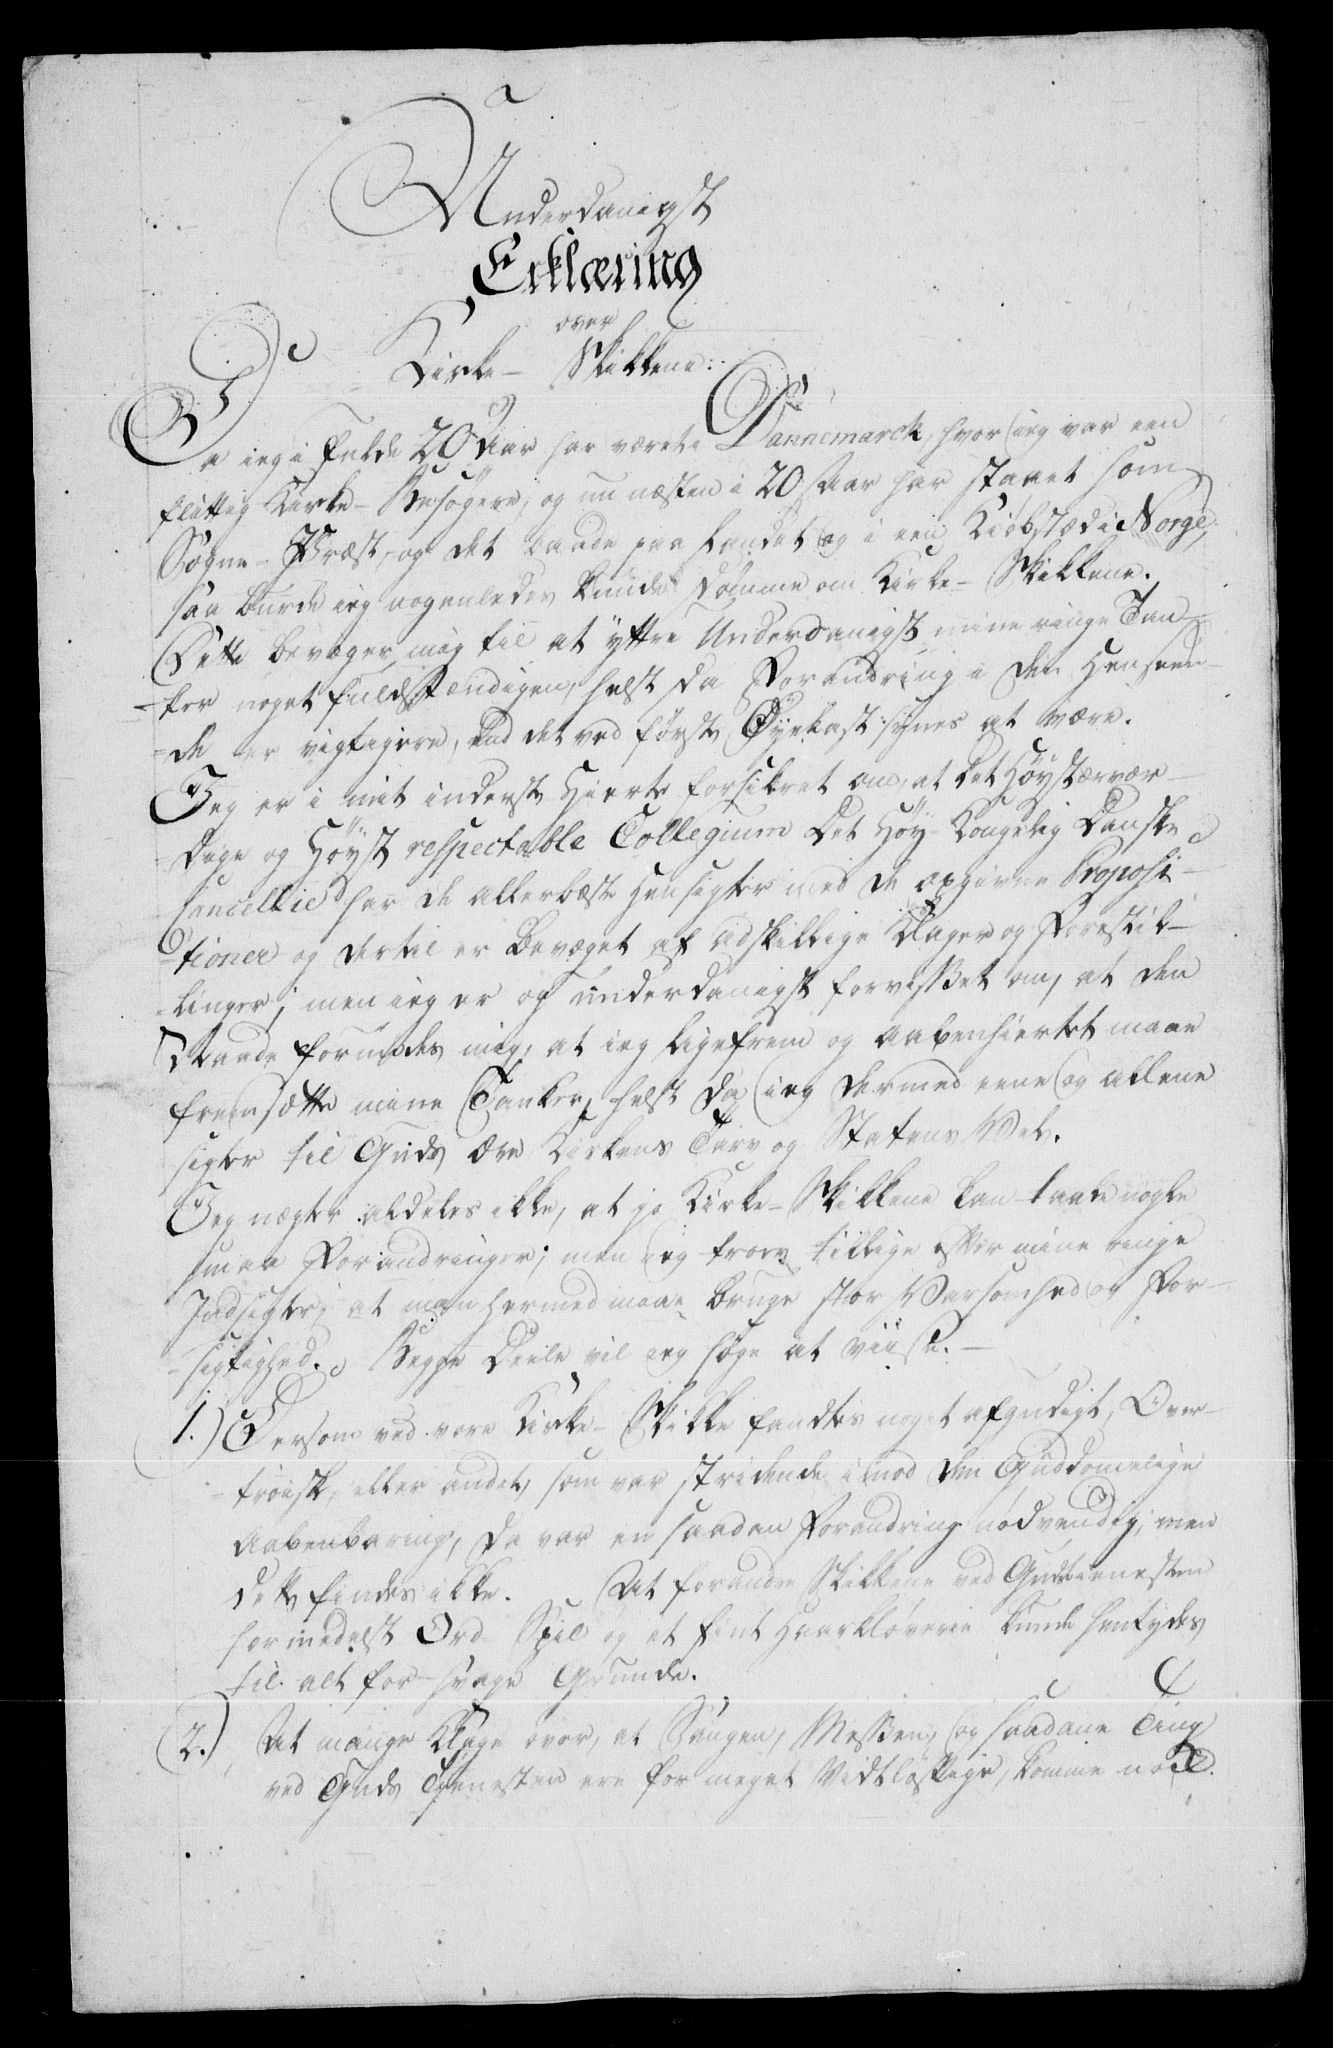 Underdanigst
Erklæring
over
Kirke- Skikkene:
Da ieg i fulde 20 Aar har været i Dannemarck, hvor ieg var een
flittig Kirke- Besøgere, og nu næsten i 20 Aar har staaet som
Sogne- Præst, og det baade paa Landet og i een Kiøbstæd i Norge,
saa burde ieg nogenledes kunde dømme om Kirke- Skikkene.
Dette bevæger mig til at yttre Underdanigst mine ringe Tan-
-ker noget fuldstændigen, helst da Forandring i den Henseen-
-de er vigtigere, end det ved første Øyekast synes at være.
Jeg er i mit inderste Hierte forsikret om, at det Høystærvær-
-dige og Høyst respectable Collegium det Høy- Kongelig Danske
Cancellie har de allerbæste Hensigter med de opgivne Proposi-
-tioner og dertil er bevæget af adskillige Klager og Forestil-
-linger; men ieg er og underdanigst forvisset om, at den
Naade formedes mig, at ieg ligefrem og aabenhiertet maae
fremsætte mine Tanker, helst da ieg dermed eene og allene
sigter til Guds Ære Kirkens Tarv og Statens Vel.
Jeg nægter aldeles ikke, at jo Kirke- Skikkene kan taale nogle
smaa Forandringer; men ieg troer tillige efter mine ringe
Indsigter, at man hermed maae bruge stor Varsomhed og For-
-sigtighed. Begge Deele vil ieg søge at viise.
1.) Dersom ved vore Kirke- Skikke fandtes noget afgudigt, Over-
-troisk, eller andet, som var stridende imod den Guddomelige
Aabenbaring, da var en saadan Forandring nødvendig; men
dette findes ikke. At forandre Skikkene ved Gudstienesten
formedelst Ord- Spil og et fint Haarkløverie kunde hentydes
til alt for svage Grunde.
2.) At mange Klage over, at Sangen, Messen, og saadane Ting
ved Guds Tienesten ere for meget Vidtløftige, komme